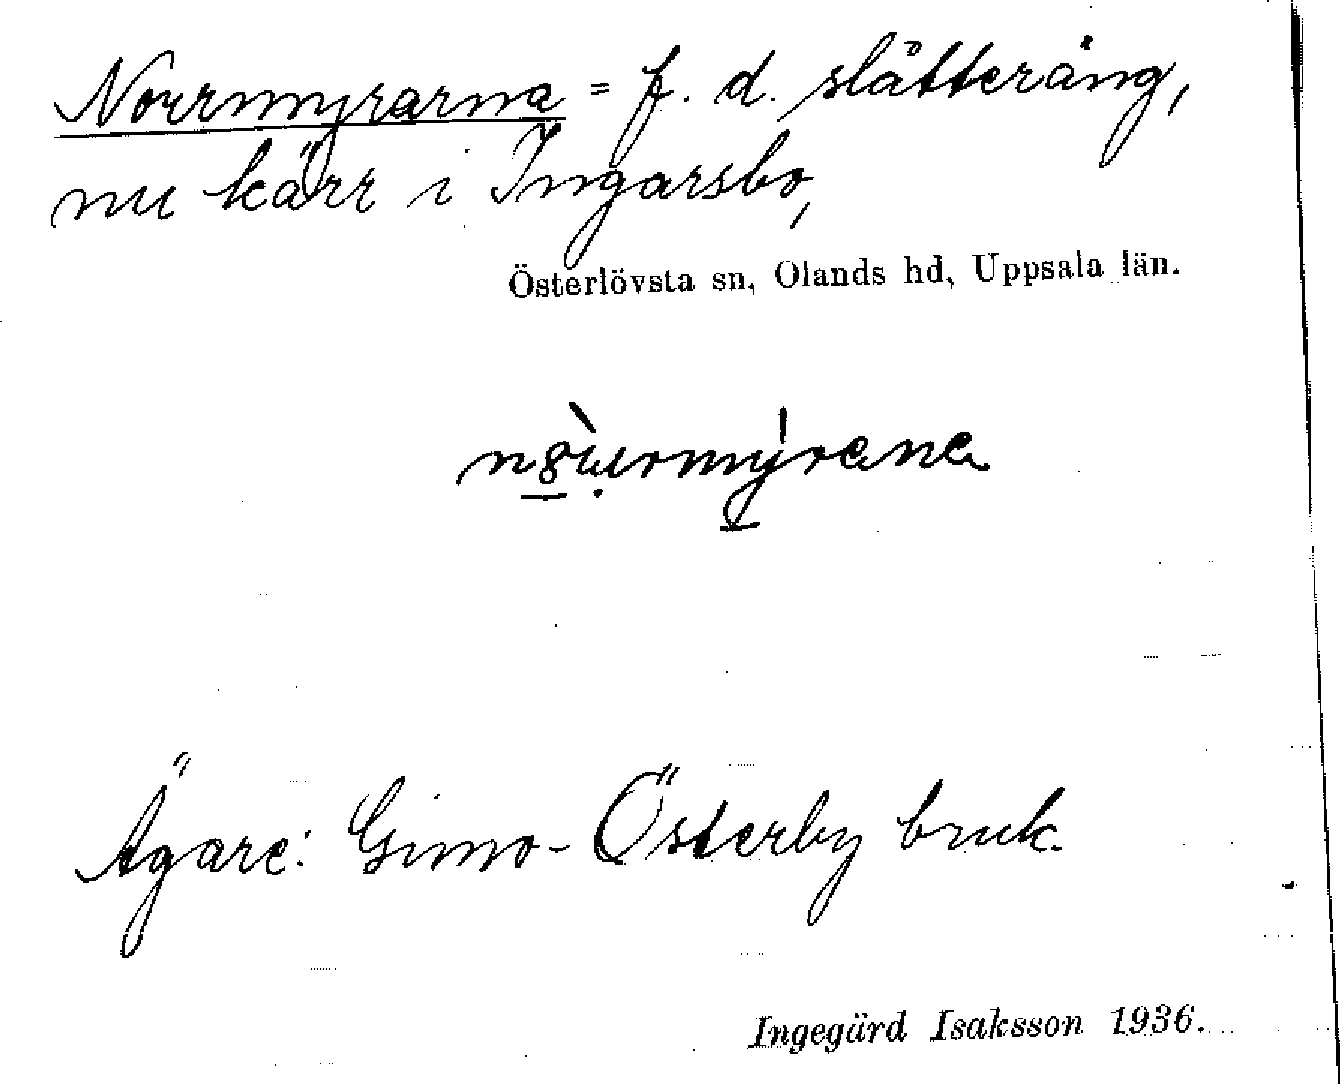 Norrmyrarna = f. d. slåtteräng,
nu kärr i Ingarsbo,
Österlövsta sn, Olands hd, Uppsala län.
Ägare: Gimo-Österby bruk.
Ingegärd Isaksson 1936.